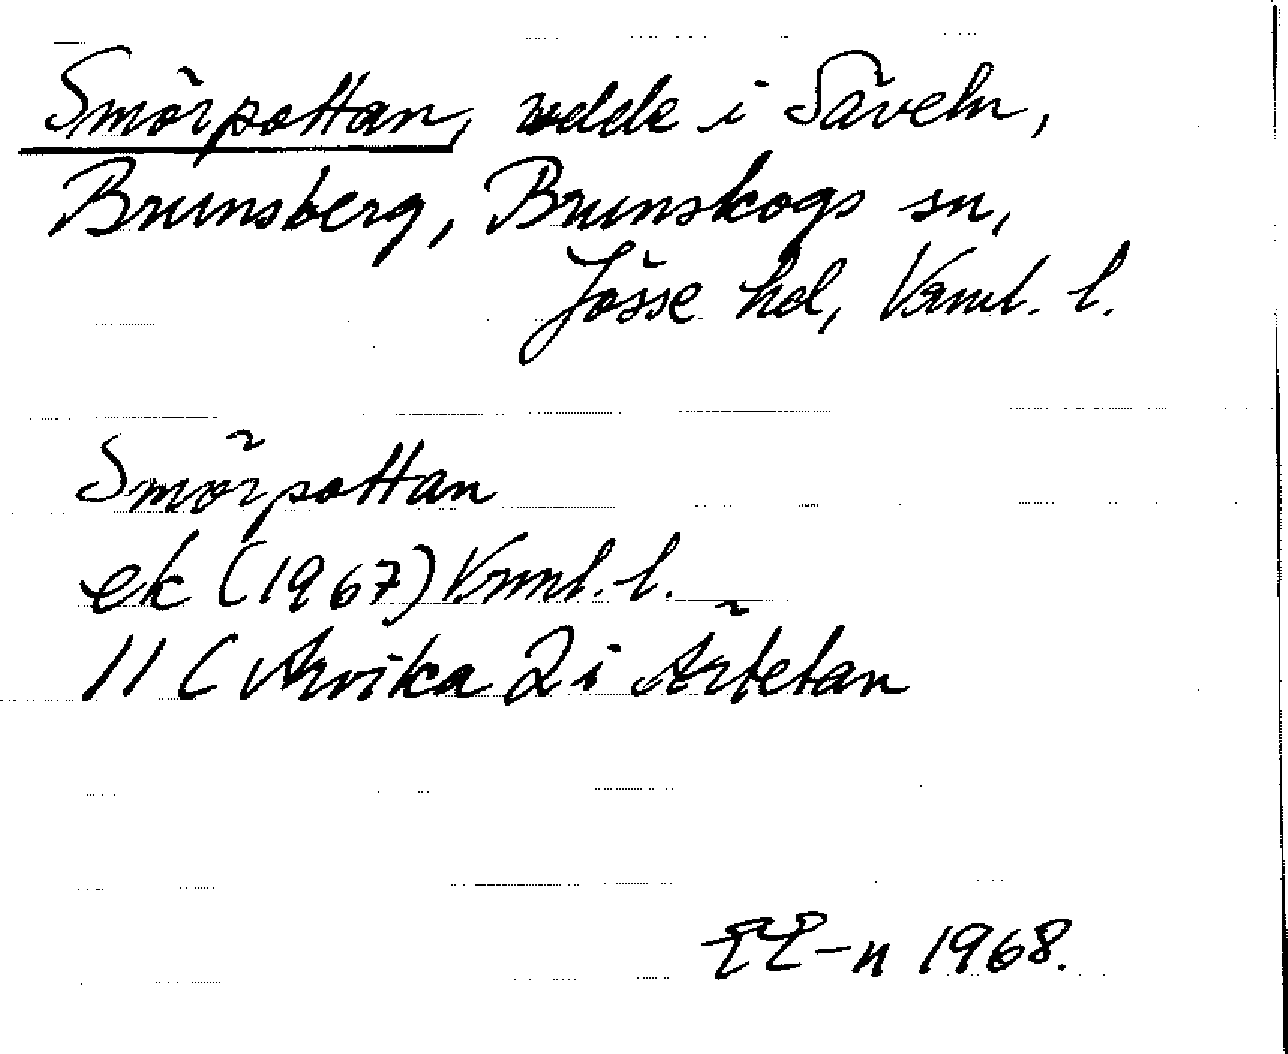 Smörpottan, udde i Säveln,
Brunsberg, Brunskogs sn,
Jösse hd, Vrml. l.
Smörpottan
ek (1967) Vrml. l.
11 C Arvika 2 i Årbetan
EE-n 1968.